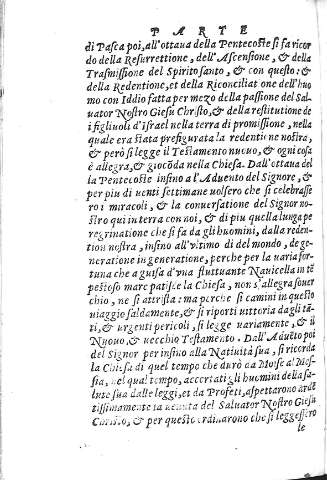 PARTE
di Pasca poi, all'ottaua della Pentecoste si fa ricor
do della Resurrettione, dell'Ascensione, & della
Trasmissione del Spirito santo, & con questo: &
della Redentione, et della Riconciliation e dell'huo
mo con Iddio fatta per mezo della passione del Sal
uator Nostro Giesu Christo, & della restitutione de
i figliuoli d'Israel nella terra di promissione, nella
quale era stata prefigurata la redentione nostra,
& però si legge il Testamento nuouo, & ogni cosa
è allegra, & gioconda nella Chiesa. Dall'ottaua del
la Pentecoste insino all'Aduento del Signore, &
per piu di uenti settimane uolsero che si celebrasse
ro i miracoli, & la conuersatione del Signor no-
stro qui interra con noi, & di piu quella lunga pe
regrinatione che si fa da gli huomini, dalla reden-
tion nostra, insino all'vltimo dì del mondo, de ge-
neratione in generatione, perche per la uaria for-
tuna che a guisa d'vna fluttuante Nauicella in tē
pestoso mare patisce la Chiesa, non s'allegra souer
chio, ne si attrista: ma perche si camini in questo
uiaggio saldamente, & si riporti uittoria da gli tā-
ti, & urgenti pericoli, si legge uariamente, & il
Nuouo, & uecchio Testamento. Dall'Auēto poi
del Signor per insino alla Natiuità sua, si ricorda
la Chiesa di quel tempo che durò da Moise al Mes-
sia, nel qual tempo, accertati gli huomini della sa-
lute sua dalle leggi, et da Profeti, aspettarono ardē
tissimamente la uenuta del Saluator Nostro Giesu
Christo, & per questo ordinarono che si leggessero
le